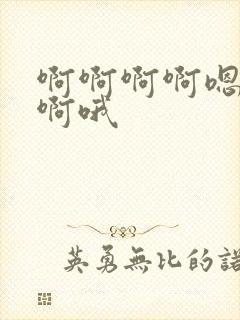 啊啊啊啊嗯
啊哦
英勇無比的諾